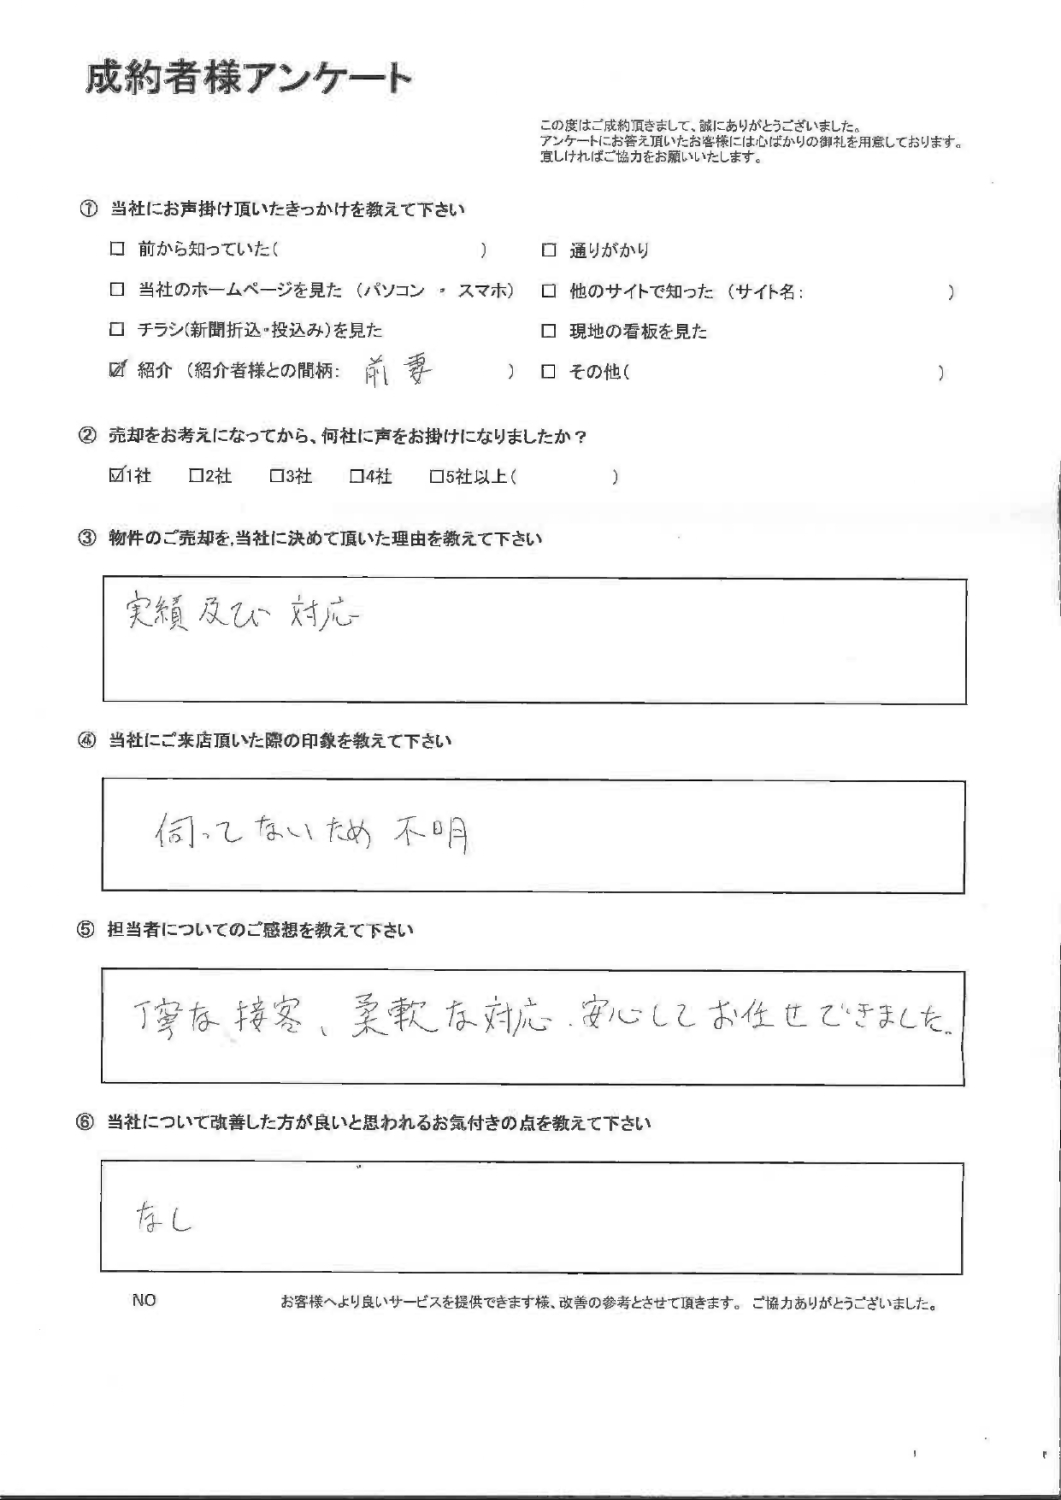 成約者様アンケート
この度はご成約頂きまして、誠にありがとうございました。
アンケートにお答え頂いたお客様には心ばかりの御礼を用意しております。
宜しければご協力をお願いいたします。
① 当社にお声掛け頂いたきっかけを教えて下さい
□ 前から知っていた( ) □ 通りがかり
□ 当社のホームページを見た（パソコン ・ スマホ） □ 他のサイトで知った（サイト名: )
□ チラシ(新聞折込・投込み)を見た □ 現地の看板を見た
☑ 紹介（紹介者様との間柄: 前妻 ) □ その他( )
② 売却をお考えになってから、何社に声をお掛けになりましたか？
☑1社 □2社 □3社 □4社 □5社以上( )
③ 物件のご売却を、当社に決めて頂いた理由を教えて下さい
実績及び 対応
④ 当社にご来店頂いた際の印象を教えて下さい
伺ってないため 不明
⑤ 担当者についてのご感想を教えて下さい
丁寧な接客、柔軟な対応.安心してお任せできました。
⑥ 当社について改善した方が良いと思われるお気付きの点を教えて下さい
なし
NO お客様へより良いサービスを提供できます様、改善の参考とさせて頂きます。 ご協力ありがとうございました。